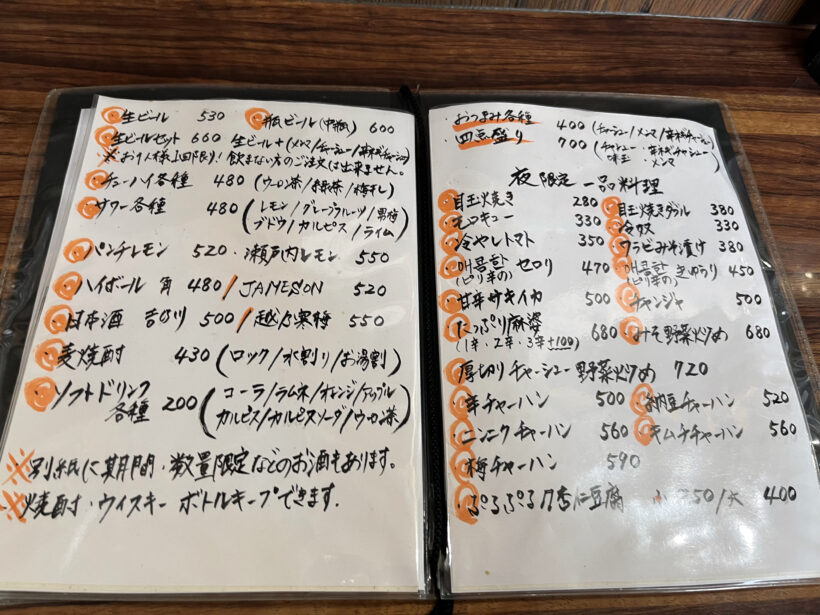 生ビール 530 瓶ビール(中瓶) 600
生ビールセット 660 生ビール+(メンマ/チャーシュー/辛ネギチャーシュー)
※お1人様1回限り!飲まない方のご注文は出来ません。
チューハイ各種 480 (ウーロン茶/緑茶/梅干し)
サワー各種 480 (レモン/グレープフルーツ/男梅/ブドウ/カルピス/ライム)
パンチレモン 520・瀬戸内レモン 550
ハイボール 角 480/JAMESON 520
日本酒 吉乃川 500/越乃寒梅 550
麦焼酎 430(ロック/水割り/お湯割)
ソフトドリンク各種 200 (コーラ/ラムネ/オレンジ/アップル
カルピス/カルピスソーダ/ウーロン茶)
※別紙に期間・数量限定などのお酒もあります。
※焼酎・ウイスキー ボトルキープできます.
おつまみ各種 400(チャーシュー/メンマ/辛ネギチャーシュー)
四点盛り 700(チャーシュー・辛ネギチャーシュー
味玉・メンマ)
夜限定 一品料理
目玉焼き 280 目玉焼きダブル 380
モロキュー 330 冷奴 330
冷やしトマト 350 ワラビみそ漬け 380
매콤한(ピリ辛の) セロリ 470 매콤한(ピリ辛の) きゅうり 450
甘辛サキイカ 500 チャンジャ 500
たっぷり麻婆 680 みそ野菜炒め 680
(1辛・2辛・3辛+100)
厚切りチャーシュー野菜炒め 720
辛チャーハン 500 納豆チャーハン 520
ニンニクチャーハン 560 キムチチャーハン 560
梅チャーハン 590
ぷるぷる杏仁豆腐 小250/大 400